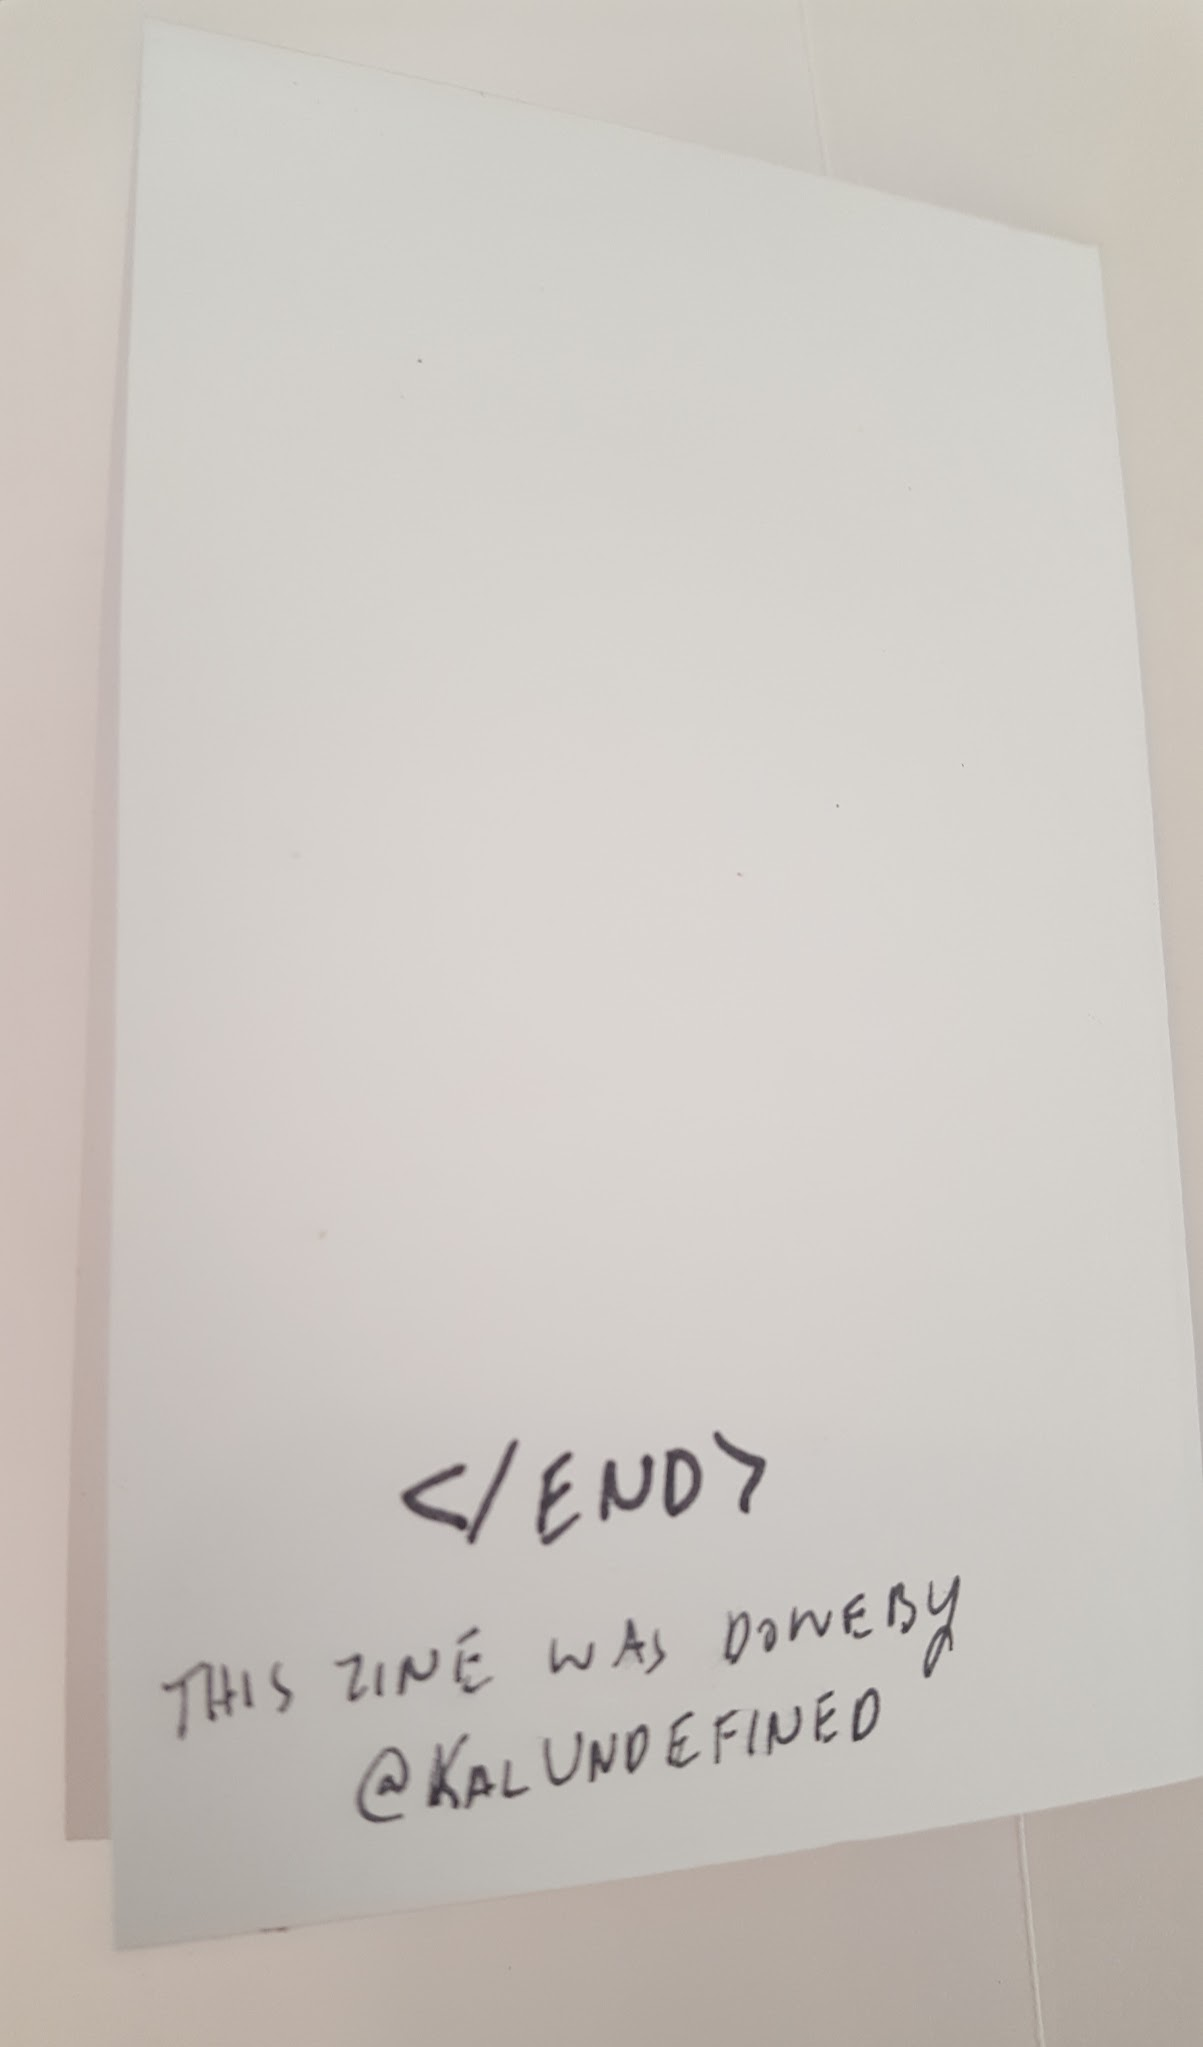 </END>
THIS ZINE WAS DONE BY
@KALUNDEFINED